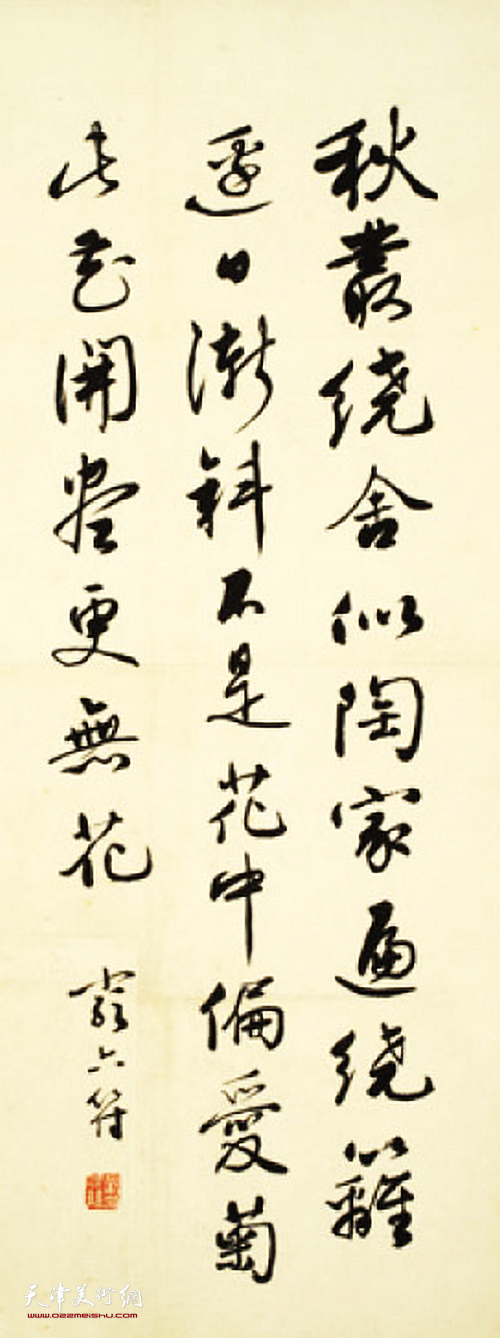 秋叢繞舍似陶家遍繞籬
邊日漸斜不是花中偏愛菊
此花開盡更無花
嚴六符
天津美術網
www.022meishu.com